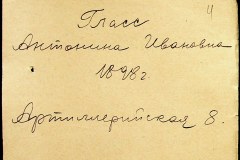 4
Гласс
Антонина Ивановна
1898г.
Артиллерийская 8.